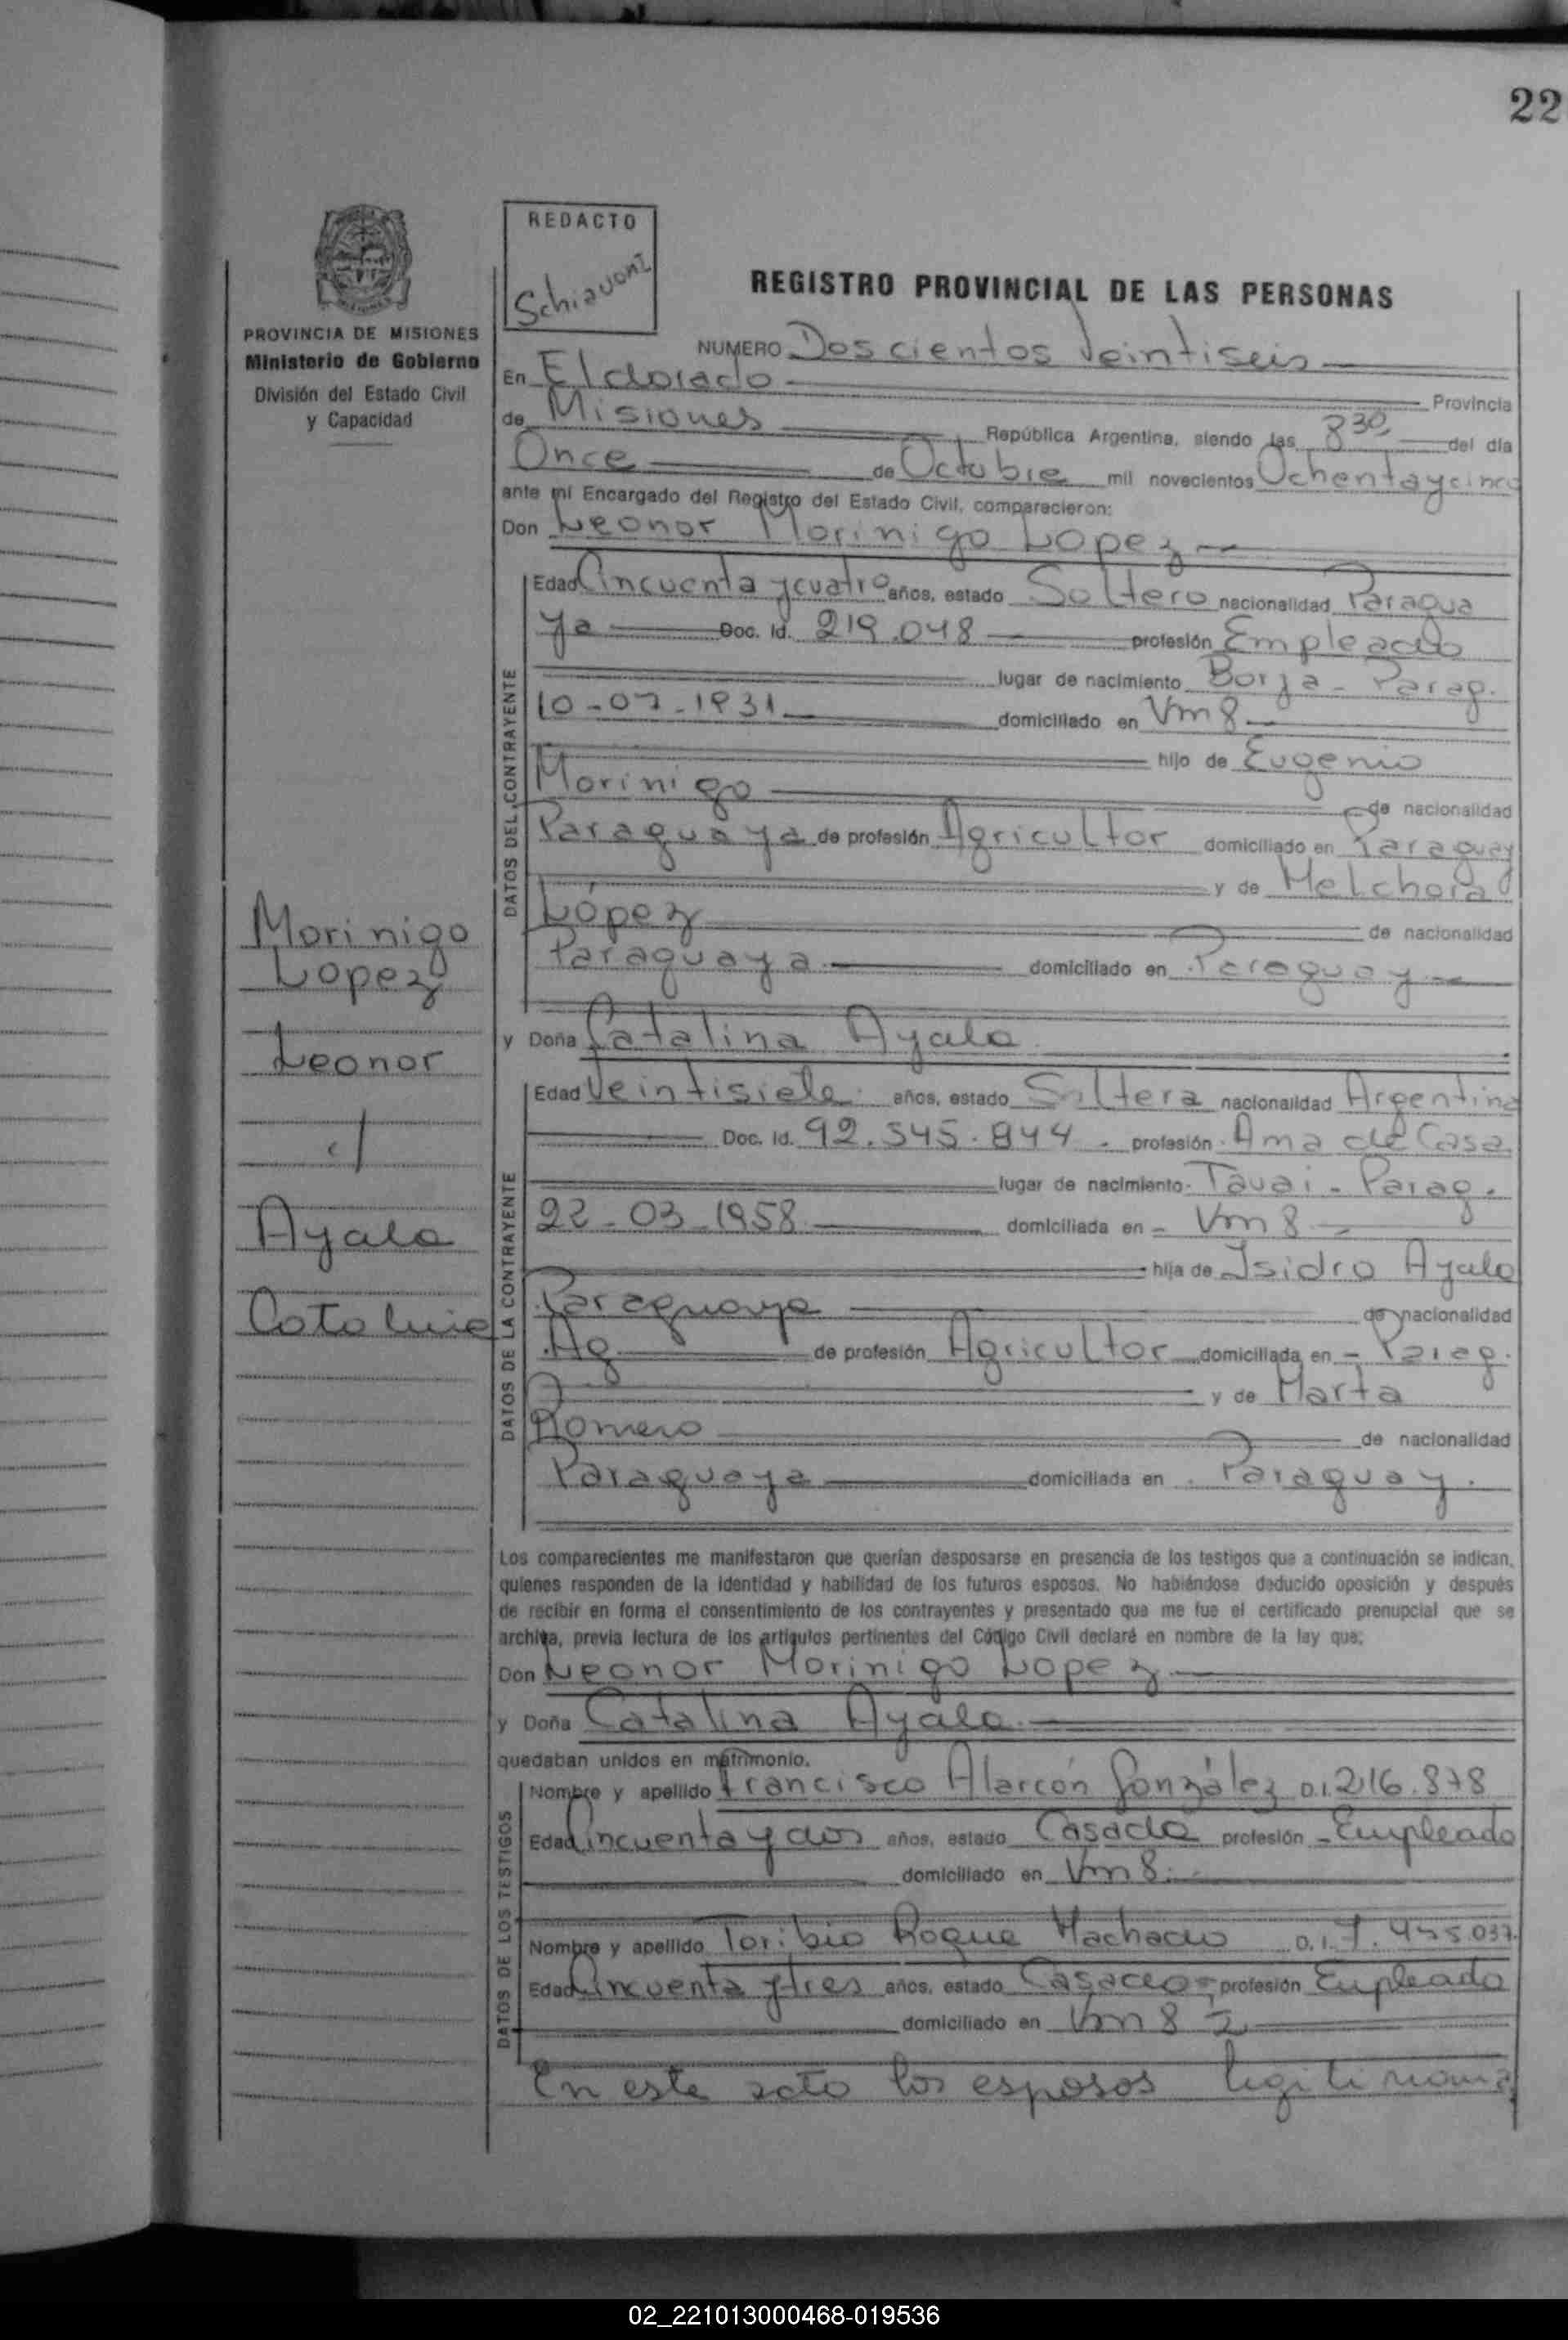 22
REDACTO
Schiavoni
PROVINCIA DE MISIONES
Ministerio de Gobierno
División del Estado Civil
y Capacidad
Morinigo
Lopez
Leonor
c/
Ayala
Catalina
REGISTRO PROVINCIAL DE LAS PERSONAS
NUMERO Doscientos Veintiseis
En Eldorado Provincia
de Misiones República Argentina, siendo las 830 del día
Once de Octubre mil novecientos Ochentaycinco
ante mí Encargado del Registro del Estado Civil, comparecieron:
Don Leonor Morinigo Lopez
DATOS DEL CONTRAYENTE
Edad Cincuenta ycuatro años, estado Soltero nacionalidad Paragua
ya Doc. Id. 219.048 profesión Empleado
lugar de nacimiento Borja - Parag.
10-07-1931 domiciliado en Vm 8
hijo de Eugenio
Morinigo de nacionalidad
Paraguaya de profesión Agricultor domiciliado en Paraguay
y de Melchora
López de nacionalidad
Paraguaya domiciliado en Paraguay
y Doña Catalina Ayala
DATOS DE LA CONTRAYENTE
Edad Veintisiete años, estado Soltera nacionalidad Argentina
Doc. Id. 92.545.844 . profesión Ama de Casa
lugar de nacimiento Tavai - Parag.
22-03-1958 domiciliada en Vm 8
hija de Isidro Ayala
Paraguaya de nacionalidad
Ag de profesión Agricultor domiciliada en Parag.
y de Marta
Romero de nacionalidad
Paraguaya domiciliada en Paraguay.
Los comparecientes me manifestaron que querían desposarse en presencia de los testigos que a continuación se indican,
quienes responden de la identidad y habilidad de los futuros esposos. No habiéndose deducido oposición y después
de recibir en forma el consentimiento de los contrayentes y presentado que me fue el certificado prenupcial que se
archiva, previa lectura de los artículos pertinentes del Código Civil declaré en nombre de la ley que:
Don Leonor Morinigo Lopez
y Doña Catalina Ayala
quedaban unidos en matrimonio.
DATOS DE LOS TESTIGOS
Nombre y apellido Francisco Alarcón González D.I. 216.878
Edad Cincuenta y dos años, estado Casado profesión Empleado
domiciliado en Vm 8.
Nombre y apellido Toribio Roque Machado D.I. 7.455.037.
Edad Cincuenta ytres años, estado Casado profesión Empleado
domiciliado en Vm 8
En este acto los esposos legitiman a
02_221013000468-019536